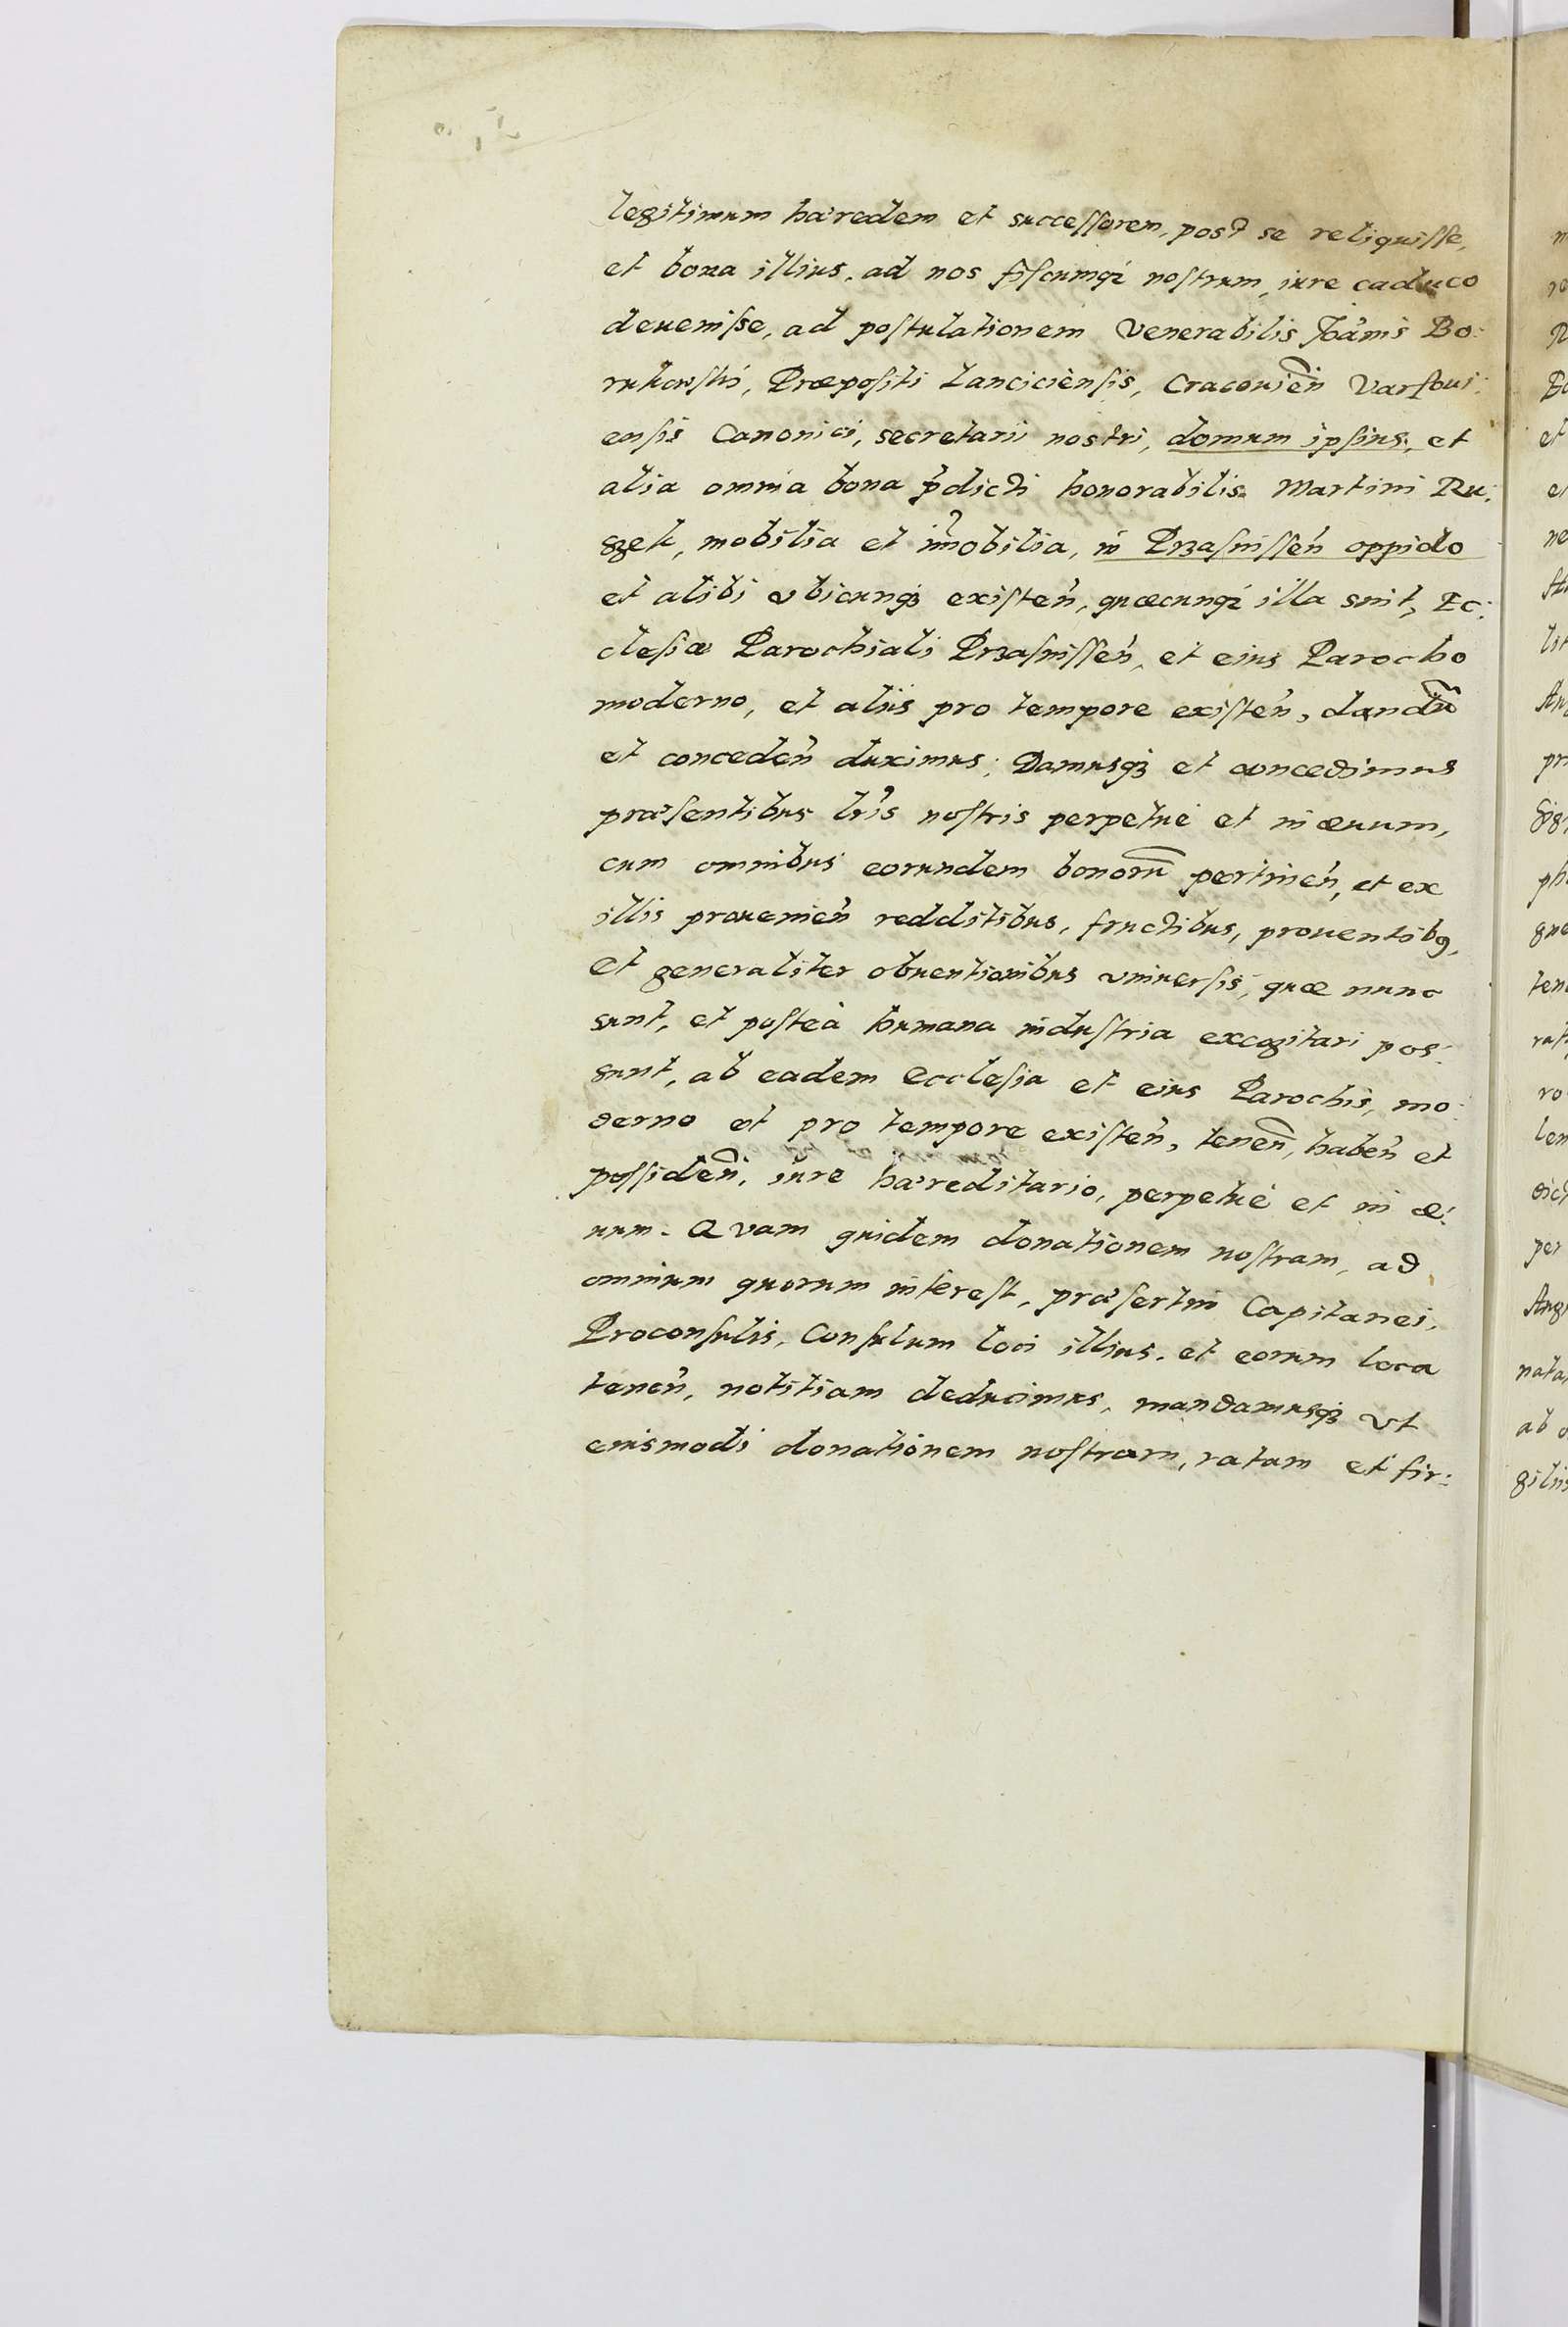 legitimum hæredem et successorem, post se reliquisse,
et bona illius, ad nos fiscumq; nostrum, iure caduco
deuenisse, ad postulationem Venerabilis Joānis Bo:
rukowskj, Præpositi Lanciciensis, Cracouien̄ Varsoui:
ensis Canonici, secretarii nostri, domum ipsius, et
alia omnia bona p̄dicti honorabilis Martini Ru:
szek, mobilia et im̄obilia, in Przasnissen̄ oppido
et alibi vbicunq3 existen̄, quæcunq; illa sint, Ec:
clesiæ Parochiali Przasnissen̄, et eius Parocho
moderno, et aliis pro tempore existen̄, dandū
et conceden̄ duximus; Damusq3 et concedimus
præsentibus lr̄is nostris perpetuè et in æuum,
cum omnibus eorundem bonorū pertinen̄, et ex
illis prouenien̄ redditibus, fructibus, prouentibq,
et generaliter obuentionibus vniuersis, quæ nunc
sunt, et posteà humana industria excogitari pos:
sunt, ab eadem Ecclesia et eius Parochis, mo:
derno et pro tempore existen̄, tenen̄, haben̄ et
possiden̄, iure hæreditario, perpetuè et in æ:
uum. Qvam quidem donationem nostram, ad
omnium quorum interest, præsertim Capitanei,
Proconsulis, Consulum loci illius, et eorum loca
tenen̄, notitiam deducimus, mandamusq3 vt
eiusmodi donationem nostram, ratam et fir: